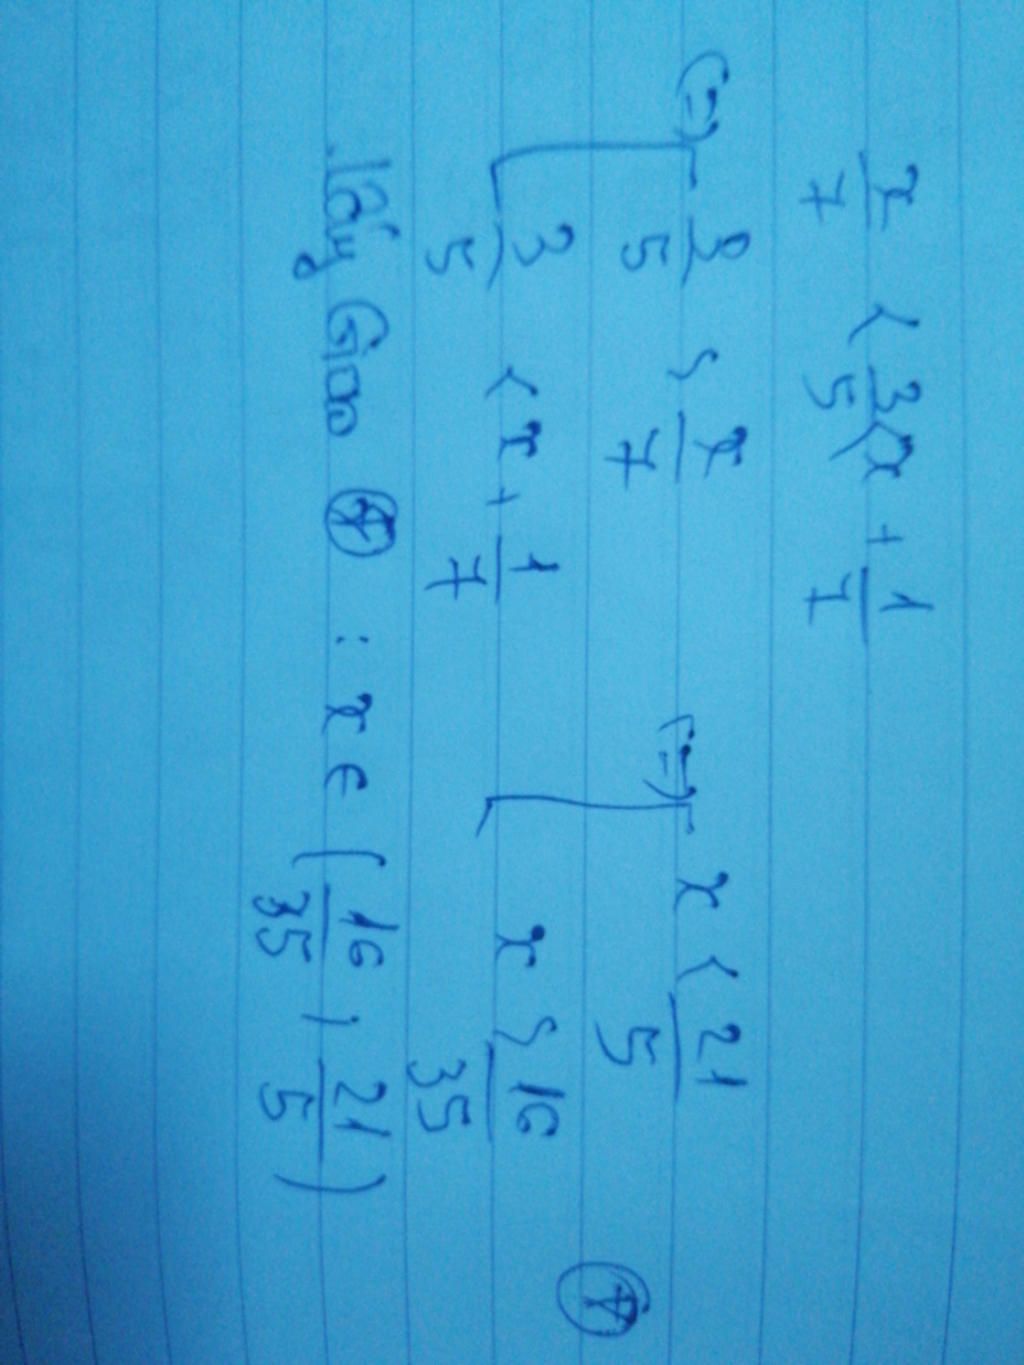 x/7 < 3/5 < x + 1/7
(=) [ 3/5 > x/7 (=) [ x < 21/5
3/5 < x + 1/7 x > 16/35 (*)
lấy Giao (*) : x ∈ (16/35 , 21/5)